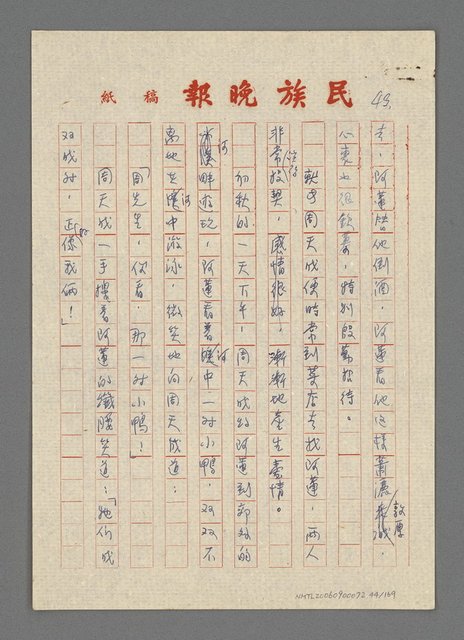 民族晚報 稿紙
43.
去，阿蓮替他倒酒，阿蓮看他這樣蕭灑敦厚，
心裏也很欽羨，特別殷勤招待。
周天成便時常到菜店去找阿蓮，兩人
非常投契，感情很好，漸漸地產生愛情。
初秋的一天下午，周天成約阿蓮到郊外的
河畔遊玩，阿蓮看着河中一对小鴨，双双不
離地在河中游泳，微笑地向周天成道：
「周先生，你看，那一对小鴨！」
周天成一手摟着阿蓮的纖腰笑道：「牠们成
双成对，正好像我倆！」
NMTL20060900072 44/169